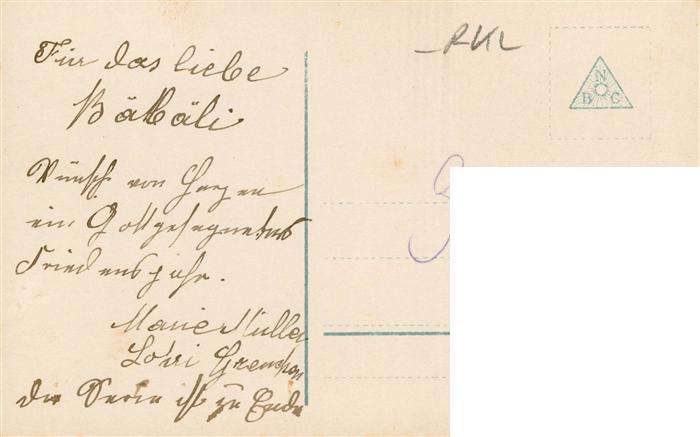 Für das liebe
Bäbäli
Wünsch von Herzen
ein Gottgesegnetes
Friedensjahr.
Marie Müller
Grenchen
die Serie ist zu Ende
RKL
N
B C